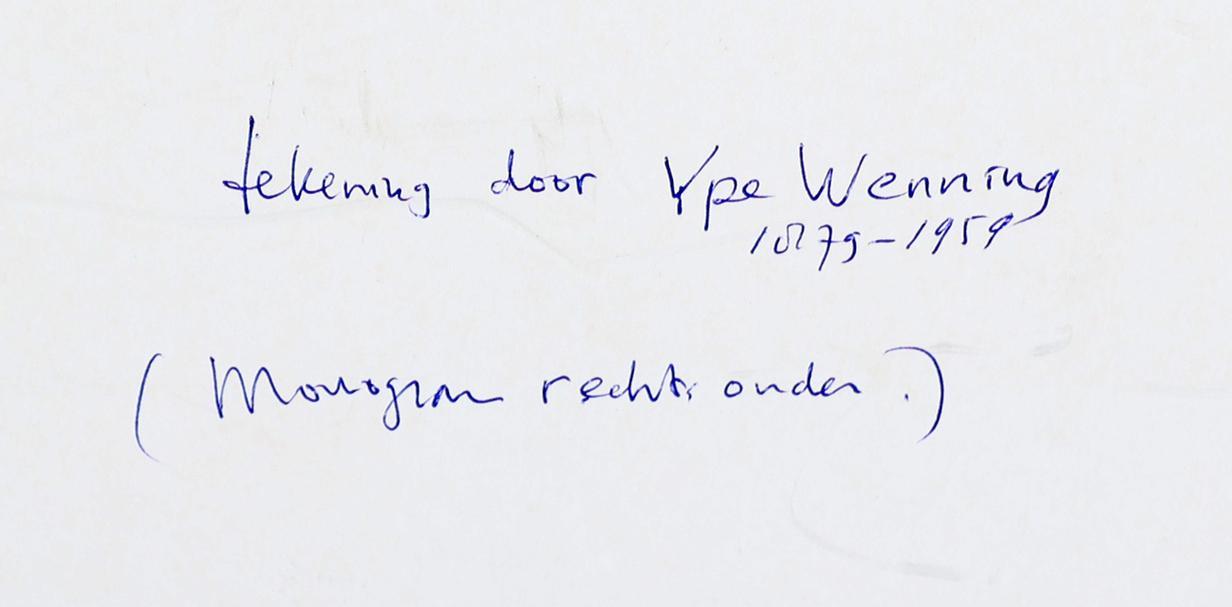 tekening door Ype Wenning
1879-1959
(Monogram rechts onder.)